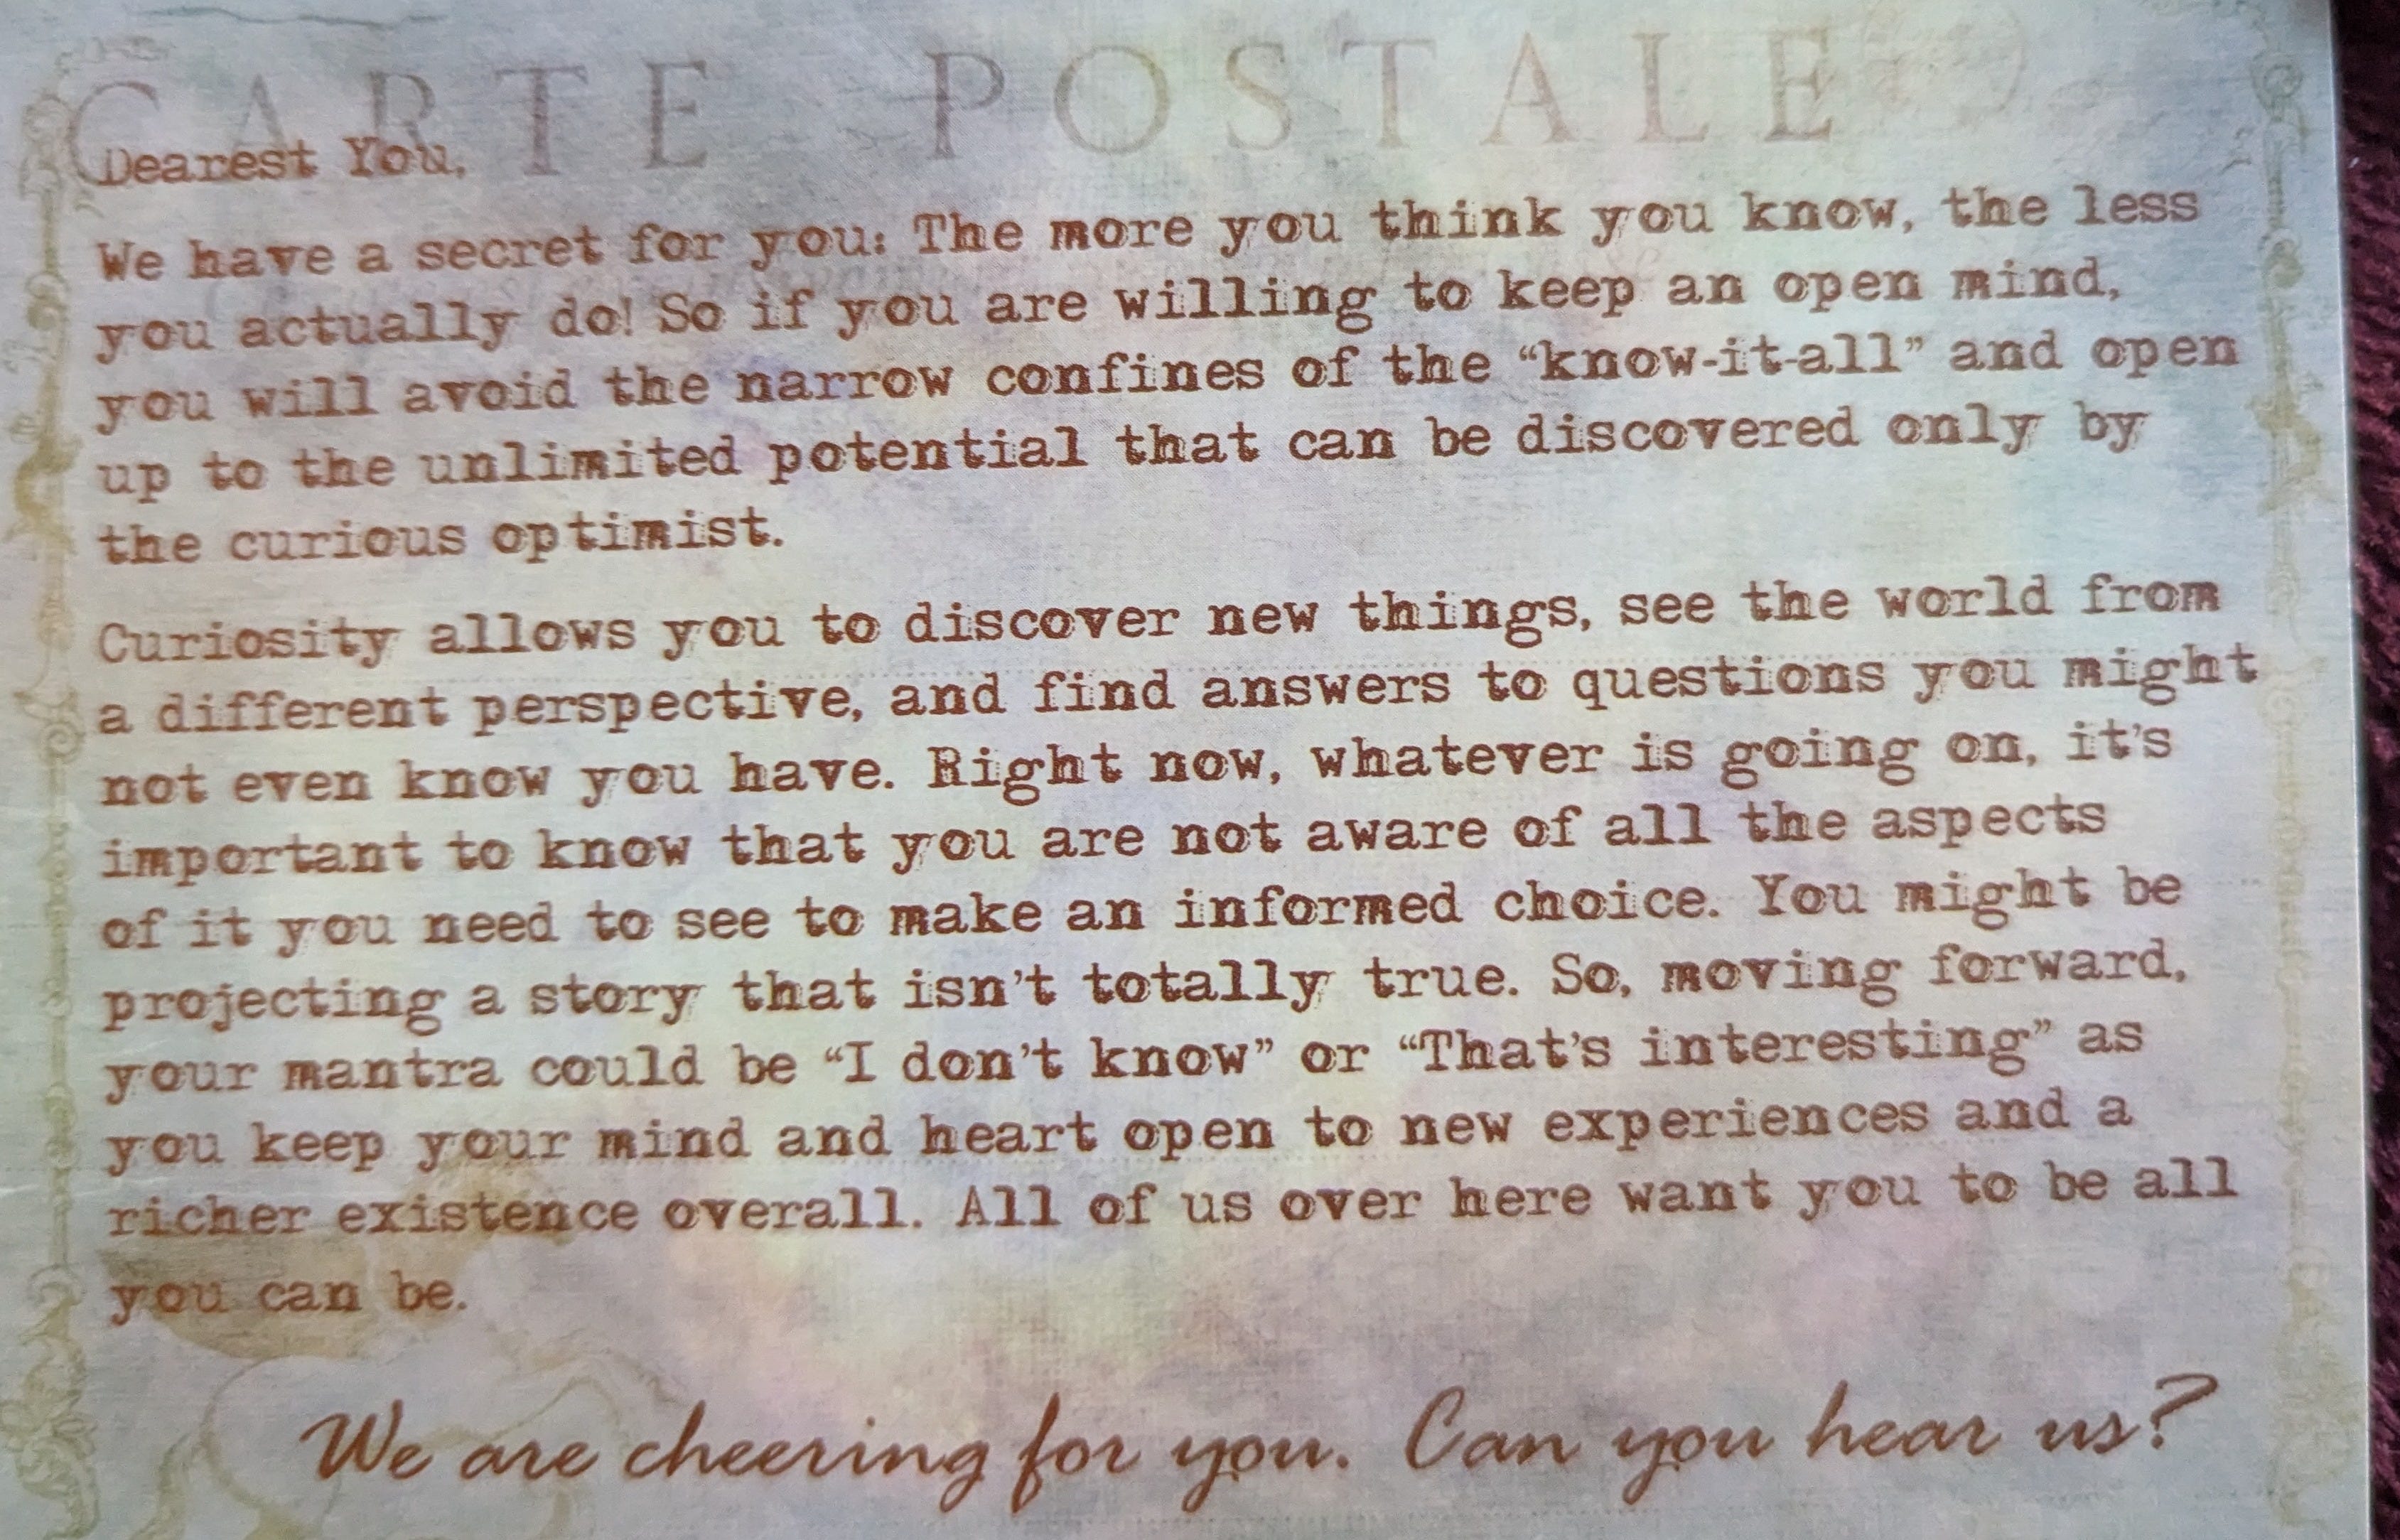 CARTE POSTALE
Dearest You,
We have a secret for you: The more you think you know, the less
you actually do! So if you are willing to keep an open mind,
you will avoid the narrow confines of the “know-it-all” and open
up to the unlimited potential that can be discovered only by
the curious optimist.
Curiosity allows you to discover new things, see the world from
a different perspective, and find answers to questions you might
not even know you have. Right now, whatever is going on, it’s
important to know that you are not aware of all the aspects
of it you need to see to make an informed choice. You might be
projecting a story that isn’t totally true. So, moving forward,
your mantra could be “I don’t know” or “That’s interesting” as
you keep your mind and heart open to new experiences and a
richer existence overall. All of us over here want you to be all
you can be.
We are cheering for you. Can you hear us?